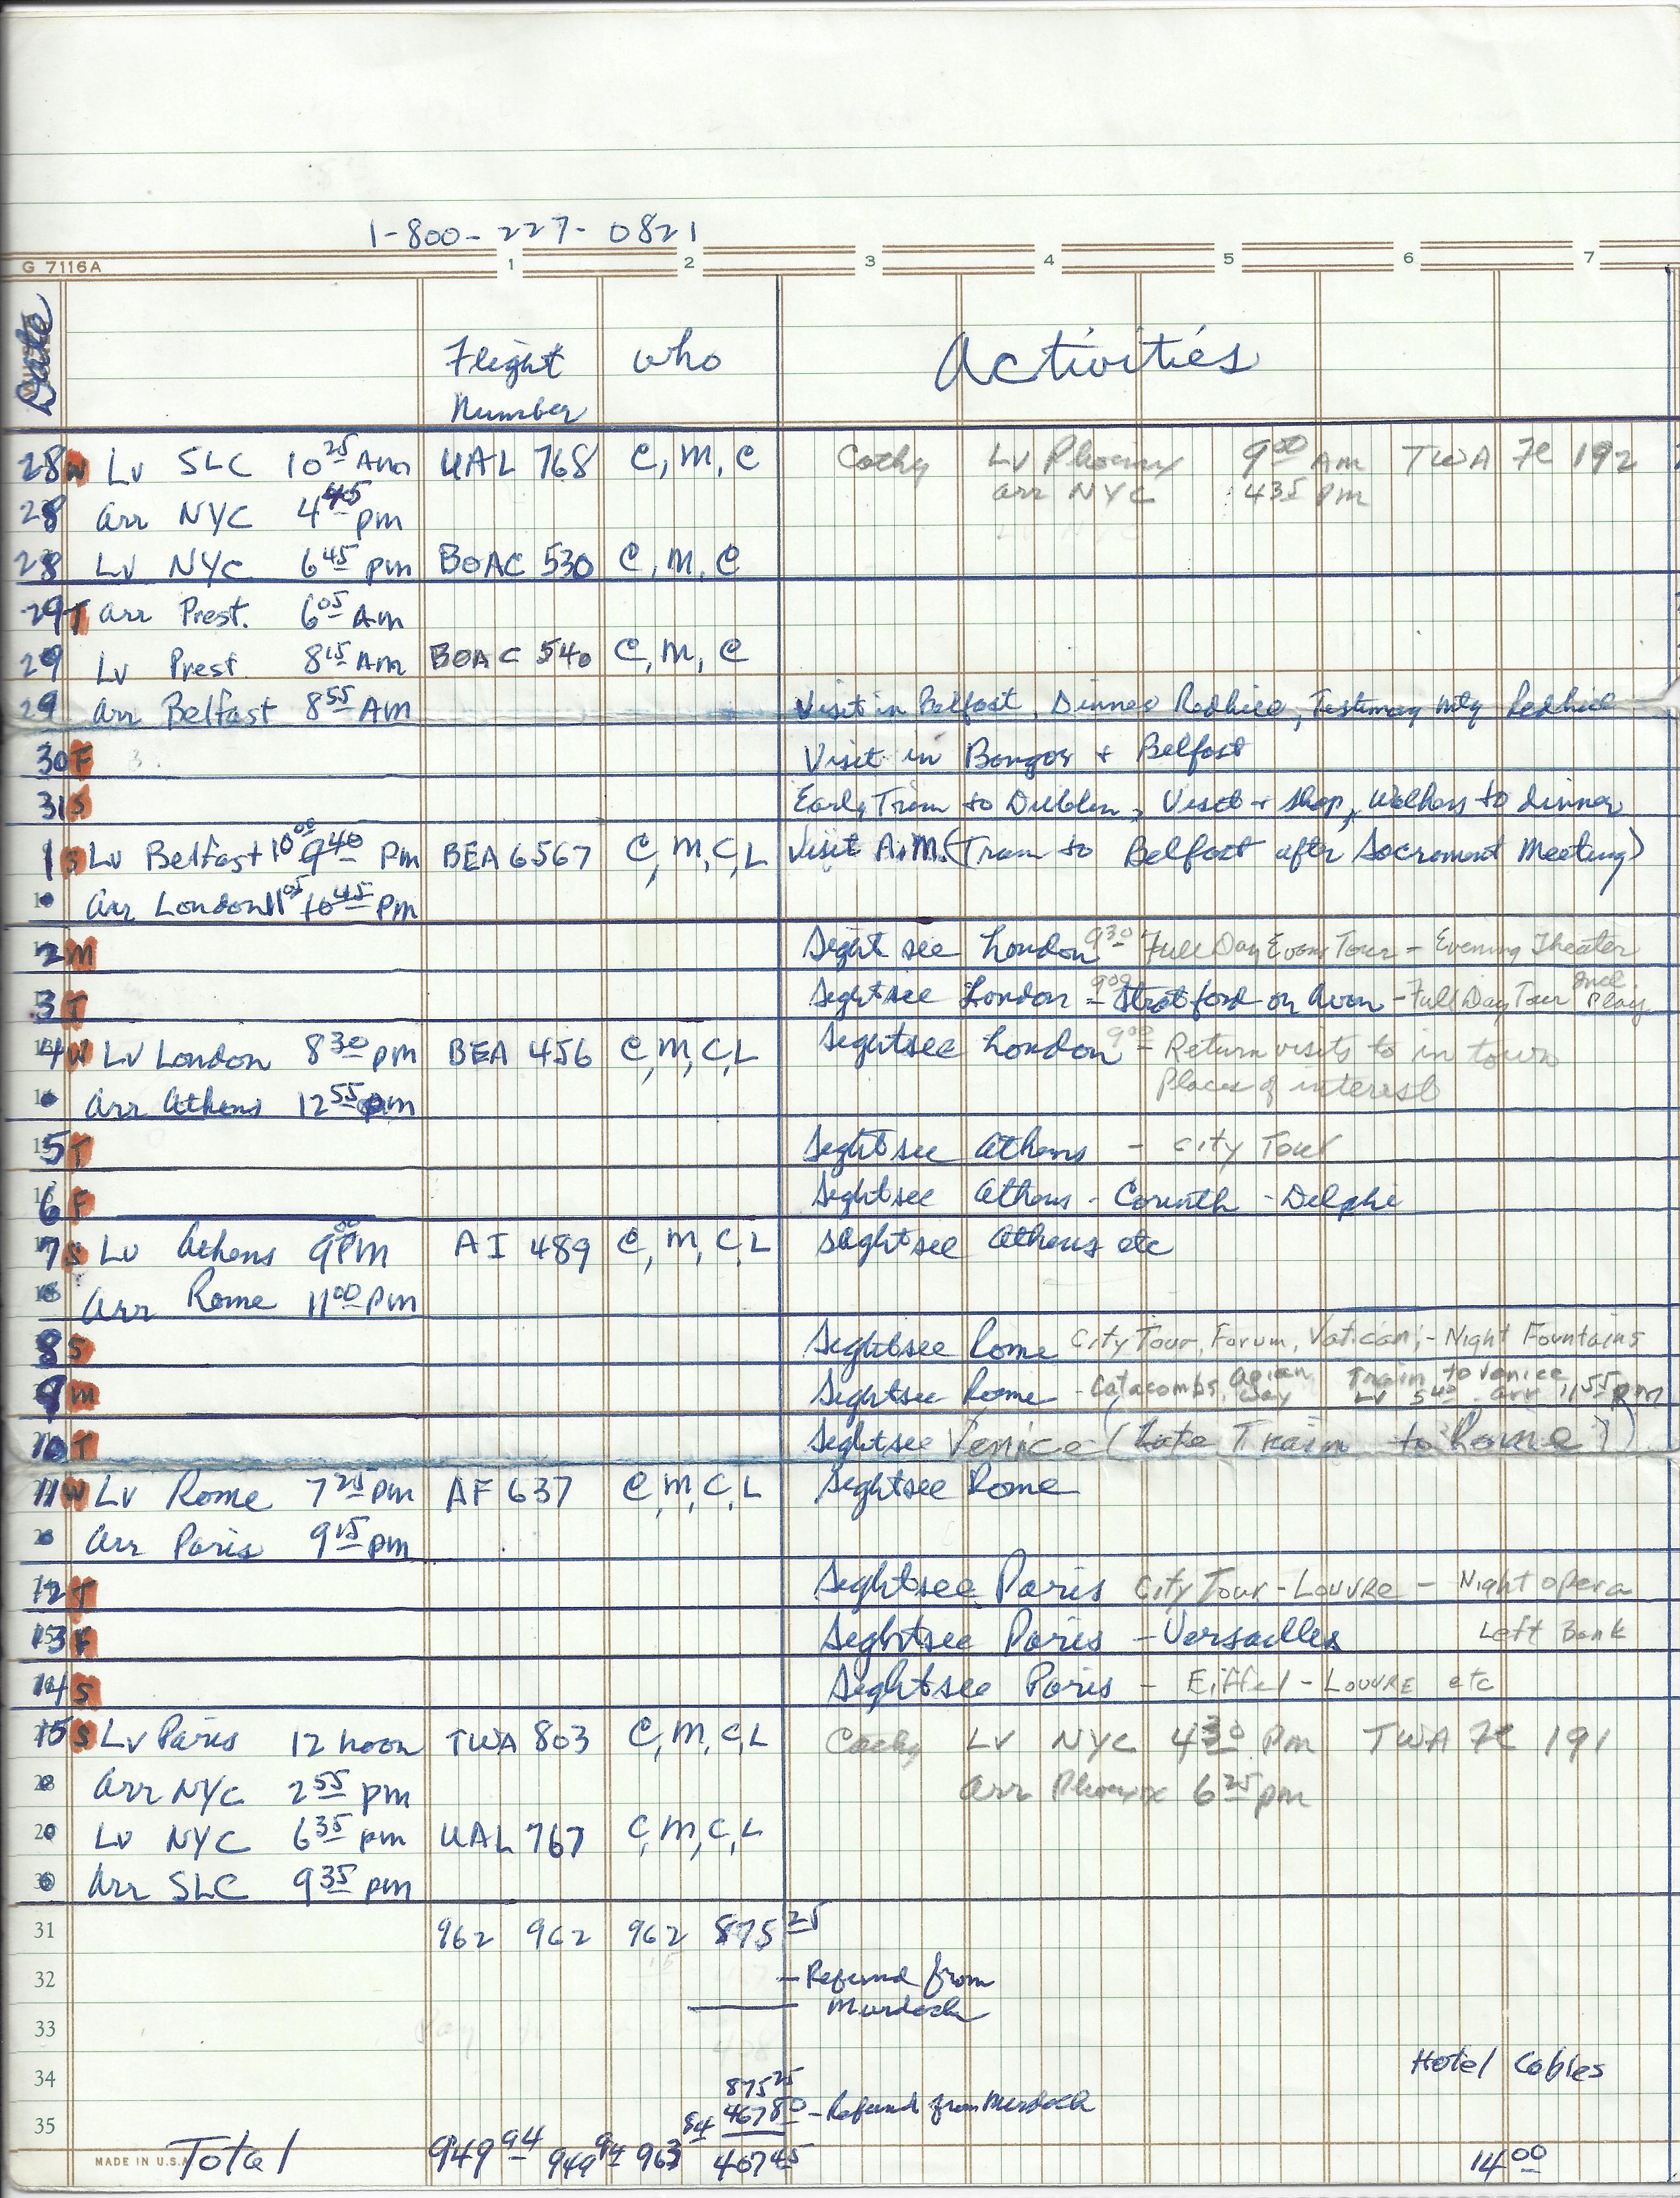 1-800-227-0821
G 7116A 1 2 3 4 5 6 7
Date Flight Number who Activities
28 W Lv SLC 10 25 Am UAL 768 C, M, C Cathy Lv Phoenix 9 00 Am TWA 192
28 arr NYC 4 45 pm arr NYC 4 35 pm
28 Lv NYC 6 45 pm BOAC 530 C, M, C
29 T arr Prest. 6 05 Am
29 Lv Prest. 8 15 Am BOAC 540 C, M, C
29 arr Belfast 8 55 AM Visit in Belfast, Dinner Testimony mtg
30 F Visit in Bangor + Belfast
31 S Early Train to Dublin, Visit + shop, to dinner
1 S Lv Belfast 10 00 9 40 Pm BEA 6567 C, M, C, L Visit A.M. (Train to Belfast after Sacrament Meeting)
arr London 11 05 10 45 Pm
2 M Sight see London 9 30 Full Day Evans Tour - Evening Theater
3 T Sightsee London 9 00 - Stratford on Avon - Full Day Tour Incl. Play
4 W Lv London 8 30 pm BEA 456 C, M, C, L Sightsee London 9 00 - Return visits to in town
Arr Athens 12 55 pm Places of interest
5 T Sightsee Athens - City Tour
6 F Sightsee Athens - Corinth - Delphi
7 S Lv Athens 9 00 PM AI 489 C, M, C, L sightsee Athens etc
Arr Rome 11 00 Pm
8 S Sightsee Rome City Tour, Forum, Vatican, - Night Fountains
9 M Sightsee Rome - Catacombs, Apian Way Train to Venice Lv 5 40 arr 11 55 Pm
10 T Sightsee Venice (Late Train to Rome)
11 W Lv Rome 7 25 pm AF 637 C, M, C, L Sightsee Rome
arr Paris 9 15 pm
12 T Sightsee Paris City Tour - Louvre - Night opera
13 F Sightsee Paris - Versailles Left Bank
14 S Sightsee Paris - Eiffel - Louvre etc
15 S Lv Paris 12 noon TWA 803 C, M, C, L Cathy Lv NYC 4 30 Pm TWA 191
Arr NYC 2 55 pm arr Phoenix 6 25 pm
Lv NYC 6 35 pm UAL 767 C, M, C, L
Arr SLC 9 35 pm
31 962 962 962 875 25
32 - Refund from
Murdock
33
34 Hotel Cables
875 25
35 467 80 - Refund from Murdock
Total 949 94 949 94 963 84 407 45 14 00
MADE IN U.S.A.